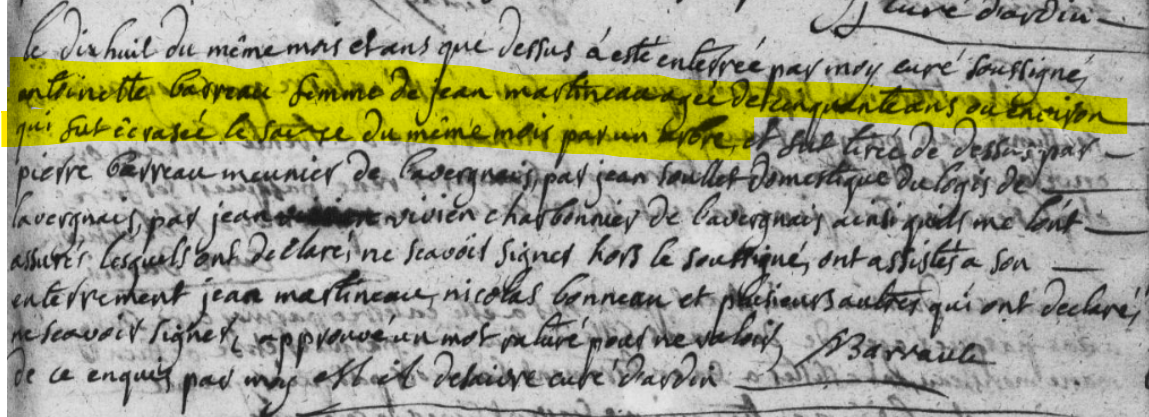 curé d'ardin
le dix huit du même mois et ans que dessus à esté enterrée par moy curé soussigné,
antoinette barreau femme de jean martineau agée de cinquante ans ou environ
qui fut écrasée le saize du même mois par un arbre, et fut tirée de dessus par
pierre barreau meunier de lavergnais, par jean soullet domestique du logis de
lavergnais, par jean vivien charbonnier de lavergnais ainsi quils me lont
assurés lesquels ont declaré, ne scavoir signer hors le soussigné, ont assistés a son
enterrement jean martineau, nicolas bonneau et plusieurs autres qui ont declaré,
ne scavoir signer, approuve un mot raturé pour ne valoir, Barrault
de ce enquis par moy curé d'ardin